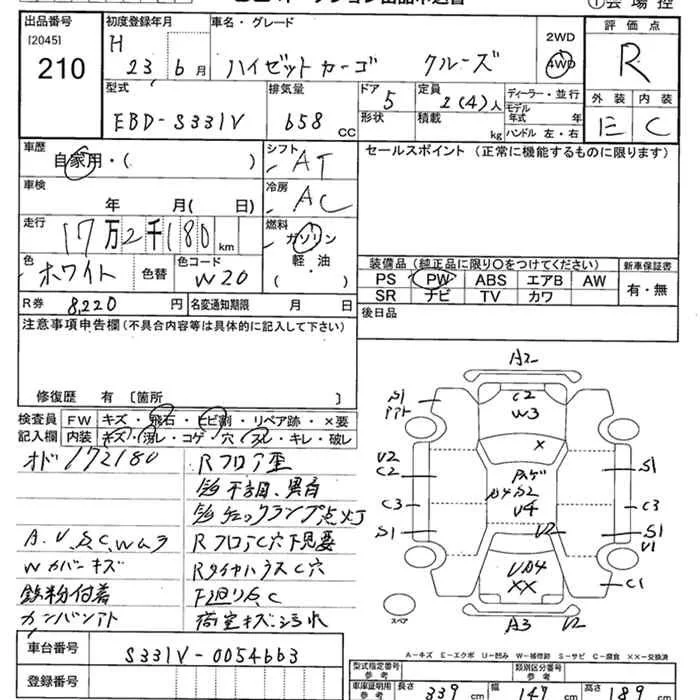 出品番号 初度登録年月 車名・グレード 評価点
[2045] H 2WD
210 23 6月 ハイゼットカーゴ クルーズ 4WD R
型式 排気量 ドア 定員 ディーラー・並行 外装 内装
EBD-S331V 658 CC 5 2(4)人 モデル年式 年
形状 積載 kg ハンドル 左・右 E C
車歴 シフト セールスポイント (正常に機能するものに限ります)
自家用・( ) AT
車検 冷房
年 月( 日) AC
走行 燃料
17万2千180km ガソリン
色 色コード 軽・油
ホワイト 色替 W20 ( )
装備品 (純正品に限り○をつけてください) 新車保証書
PS PW ABS エアB AW 有・無
SR ナビ TV カワ
R券 8,220 円 名変通知期限 月 日
後日品
注意事項申告欄(不具合内容等は具体的に記入して下さい)
修復歴 有 [箇所 ]
検査員 FW キズ・飛石・ヒビ割・リペア跡・×要
記入欄 内装 キズ・汚レ・コゲ・穴・スレ・キレ・破レ
オド172180 Rフロア歪
RフロアC穴下見要
Wカバーキズ RタイヤハウスC穴
鉄粉付着 下廻りC
カンバンアト 荷室キズ・汚れ
A2
S1 C2
W3
V2 ×
C2 S1
C3 S2 C3
V4
S1 V2 S1
V1
××
C1
スペア
A3 V2
A-キズ E-エクボ U-凹み W-補修跡 S-サビ C-腐食 ××-交換済
車台番号 S331V-0054663
登録番号
型式指定番号 参考 類別区分番号 参考
車庫証明用 参考 長さ 339 cm 幅 147 cm 高さ 189 cm